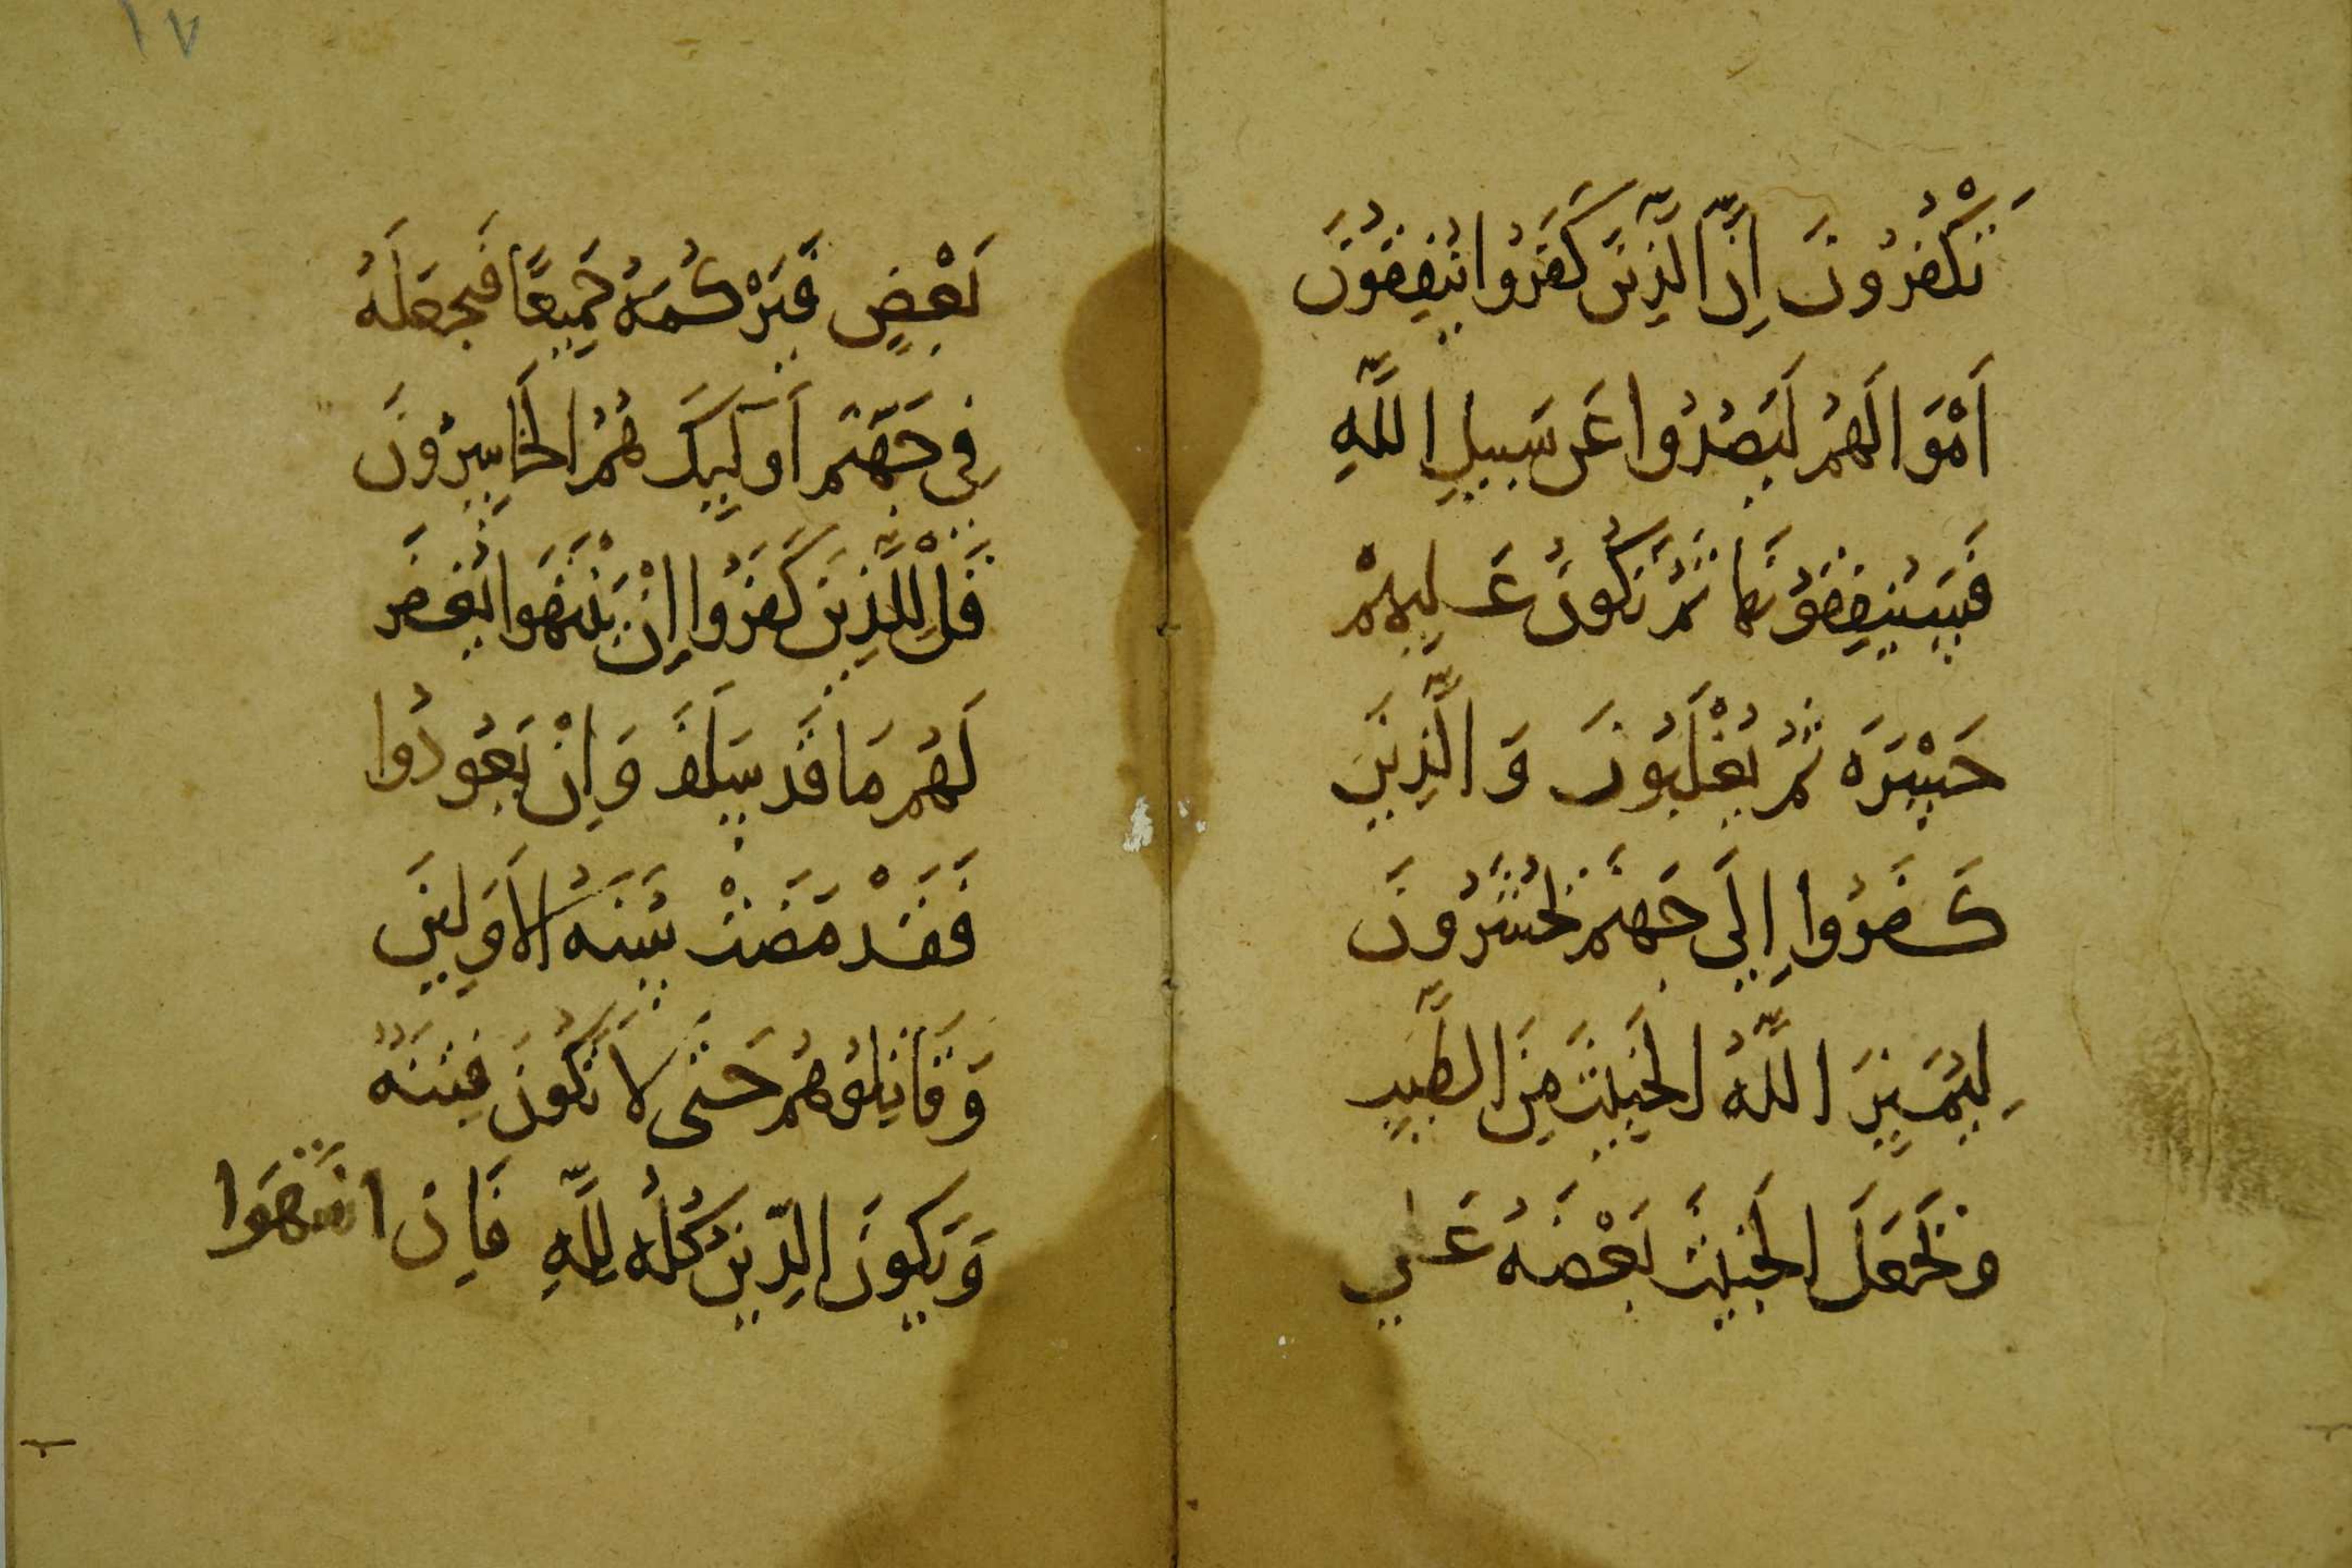 ١٧
تَكْفُرُونَ اِنَّ الَّذِينَ كَفَرُوا يُنْفِقُونَ
اَمْوَالَهُمْ لِيَصُدُّوا عَن سَبِيلِ اللَّهِ
فَسَيُنفِقُونَهَا ثُمَّ تَكُونُ عَلَيهِمْ
حَسْرَه ثُمَّ يُغْلَبُونَ وَالَّذِينَ
كَفَرُوا اِلَى جَهَنَّم يُحْشَرُونَ
لِيَمِيزَ اللَّهُ الخَبِيثَ مِنَ الطَّيِبِ
وَيَجْعَلَ الخَبِيثَ بَعْضَهُ عَلي
بَعْضٍ فَيَرْكُمَهُ جَمِيعًا فَيَجعَلَهُ
فِي جَهَنَّم اُولَئِكَ هُمُ الخَاسِرُونَ
قُلْ لِلَّذِينَ كَفَرُوا اِنْ يَنْتَهَوا يُغفَر
لَهُم مَا قَد سَلَفَ وَاِنْ يَعُودُوا
فَقَدْ مَضَتْ سُنَّهُ الاَوَلِينَ
وَقَاتِلُوهُم حَتَّى لاَ تَكُونَ فِتنَهٌ
وَيَكُونَ الدِّينُ كُلُّهُ لِلَّهِ فَاِنِ انتَهَوا